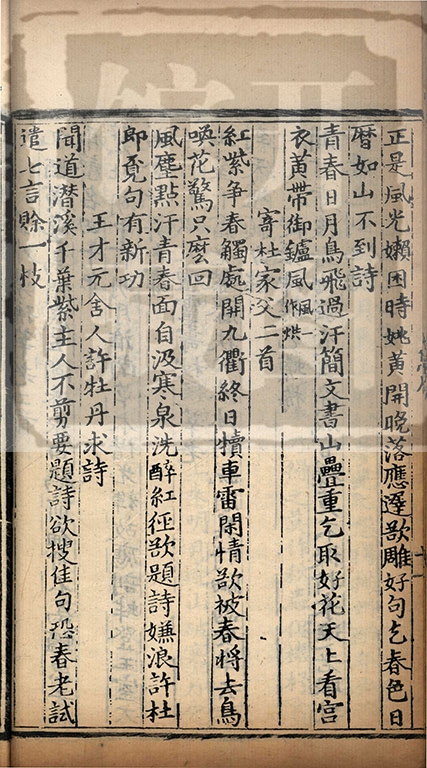 正是風光嬾困時姚黃開晚落應遲欲雕好句乞春色日
曆如山不到詩
青春日月鳥飛過汗簡文書山疊重乞取好花天上看宮
衣黃帶御鑪風風一作烘
寄杜家父二首
紅紫争春觸處開九衢終日犢車雷閑情欲被春將去鳥
喚花驚只麽回
風塵點汙青春面自汲寒泉洗醉紅徑欲題詩嫌浪許杜
郎覓句有新功
王才元舍人許牡丹求詩
聞道潛溪千葉紫主人不剪要題詩欲搜佳句恐春老試
遣七言賒一枝